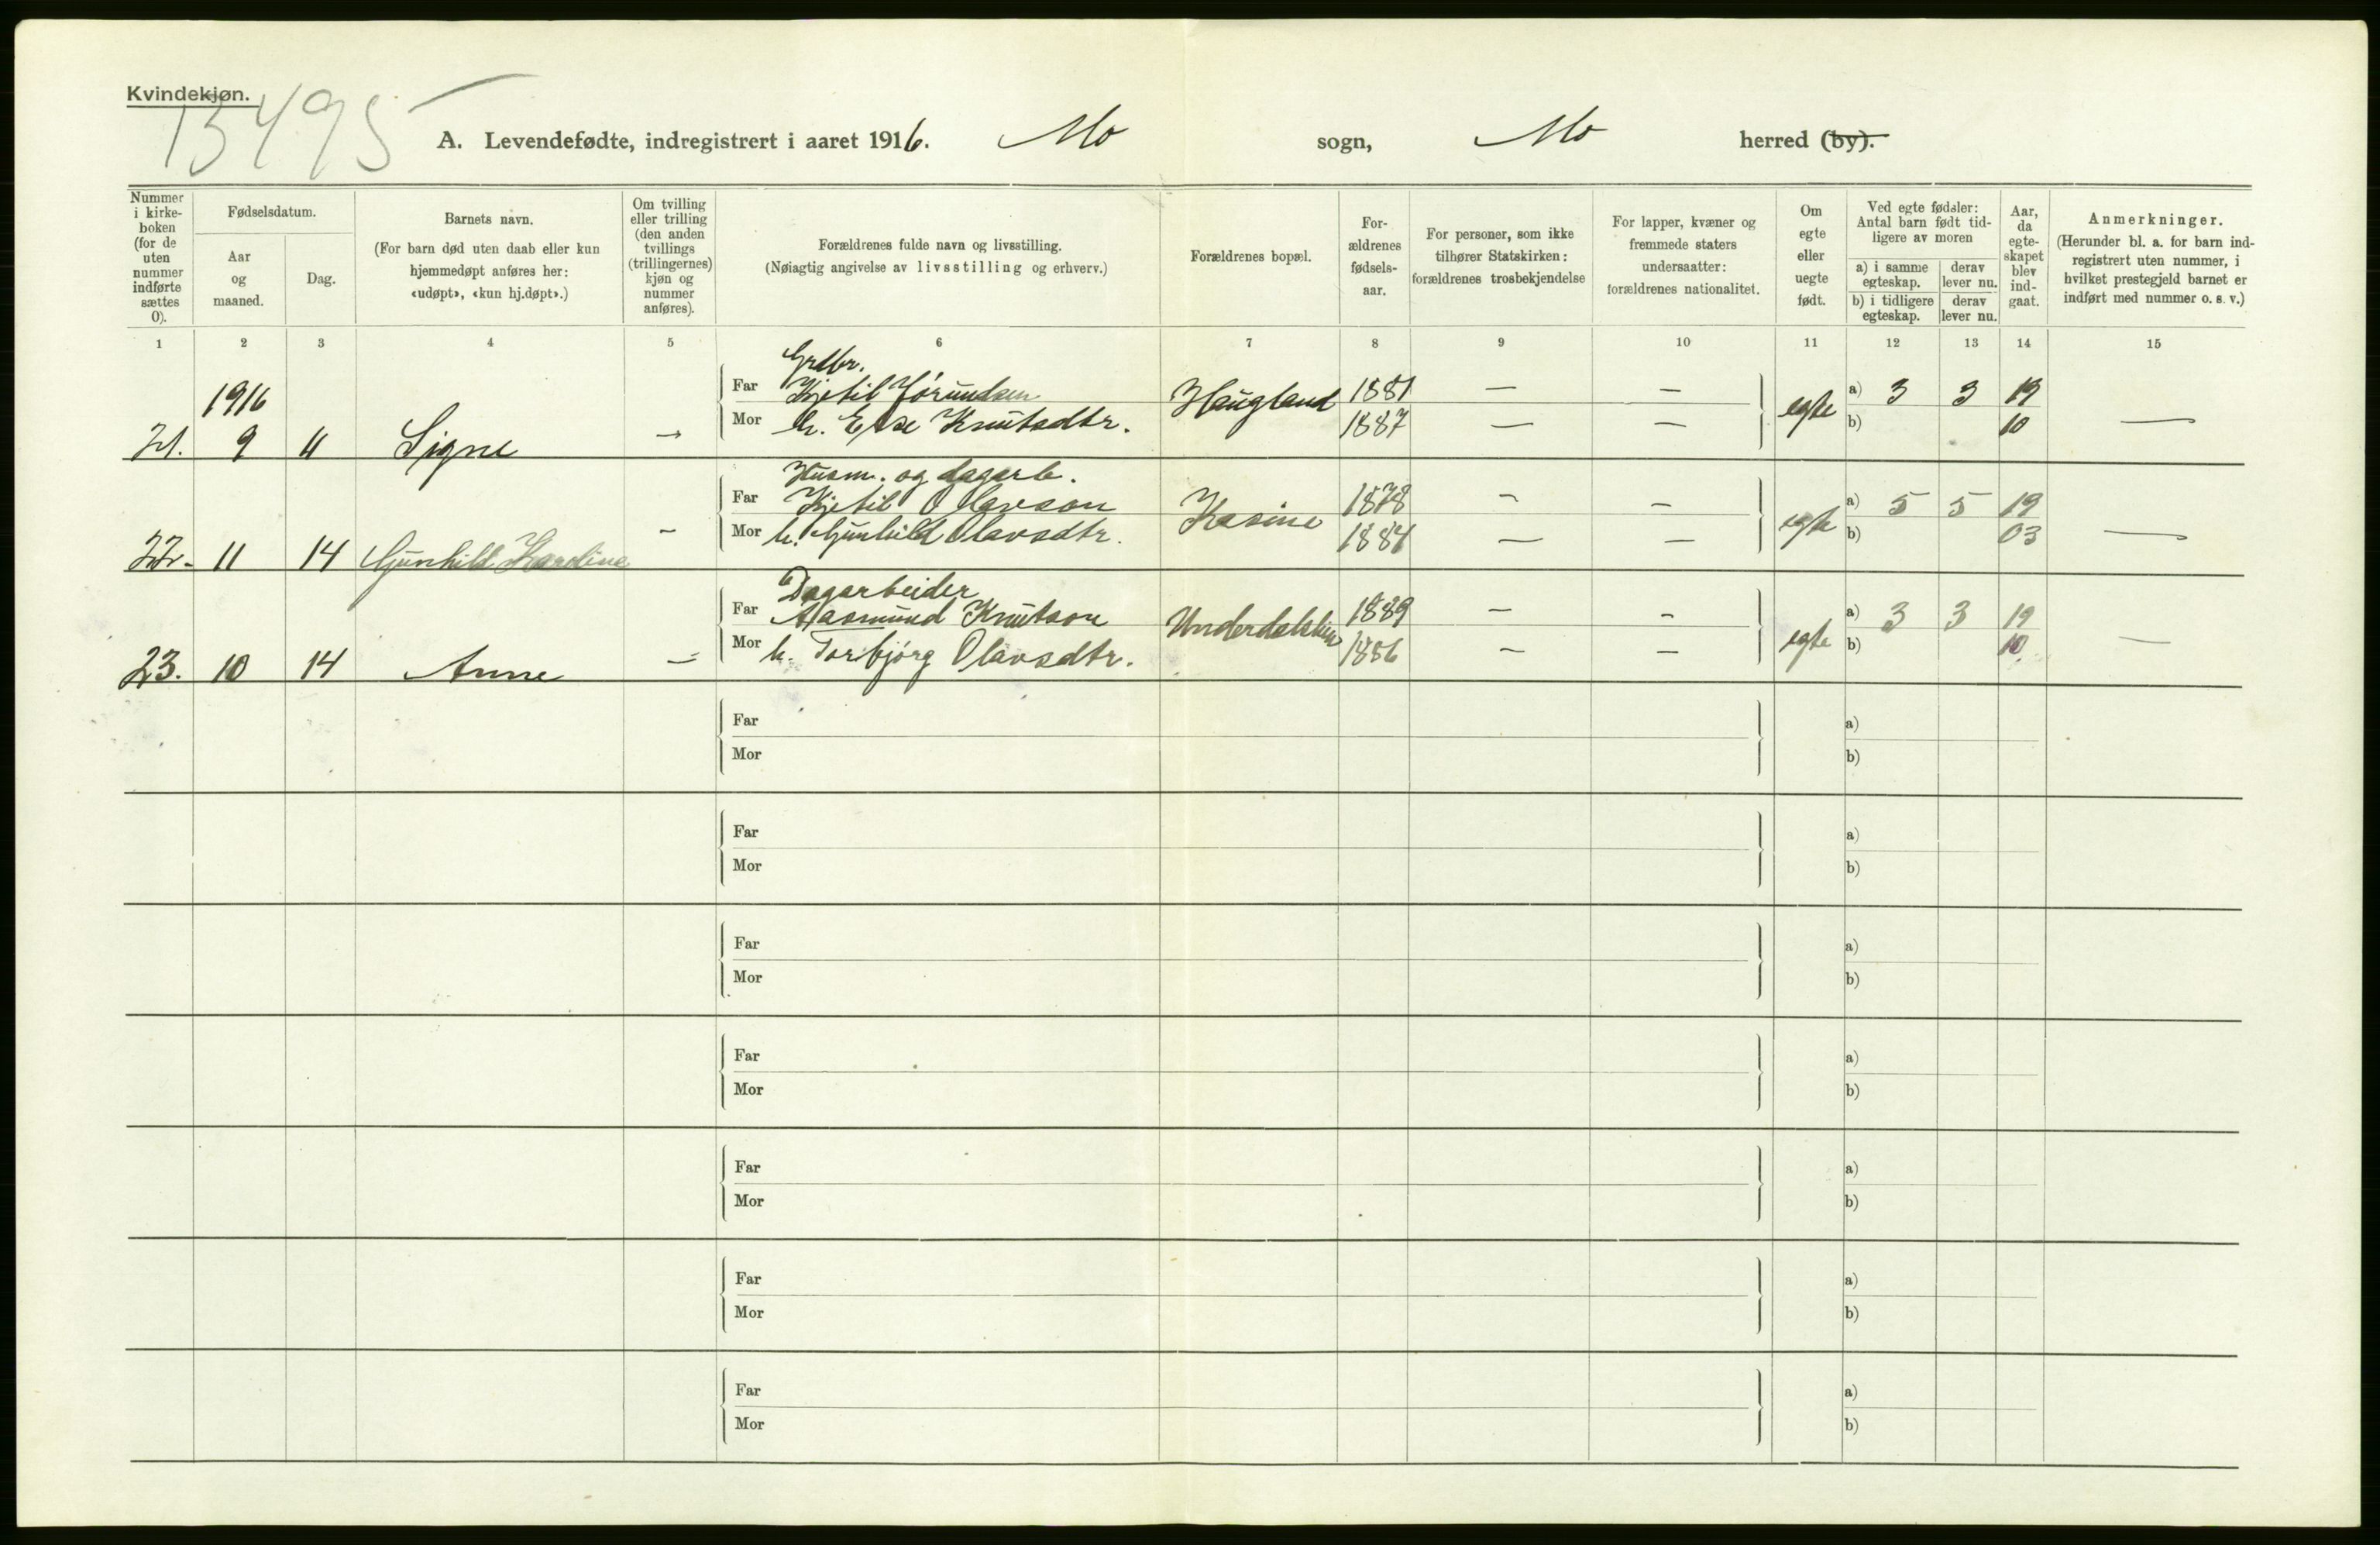 Kvindekjøn.
13495
A. Levendefødte, indregistrert i aaret 1916. Mo sogn, Mo herred (by).
Nummer i kirke-boken (for de uten nummer indførte sættes 0).
Fødselsdatum.
Aar og maaned.
Dag.
Barnets navn.
(For barn død uten daab eller kun hjemmedøpt anføres her: «udøpt», «kun hj.døpt».)
Om tvilling eller trilling (den anden tvillings (trillingernes) kjøn og nummer anføres).
Forældrenes fulde navn og livsstilling.
(Nøiagtig angivelse av livsstilling og erhverv.)
Forældrenes bopæl.
For-ældrenes fødsels-aar.
For personer, som ikke tilhører Statskirken: forældrenes trosbekjendelse
For lapper, kvæner og fremmede staters undersaatter: forældrenes nationalitet.
Om egte eller uegte født.
Ved egte fødsler: Antal barn født tid-ligere av moren
a) i samme egteskap.
derav lever nu.
b) i tidligere egteskap.
derav lever nu.
Aar, da egte-skapet blev ind-gaat.
Anmerkninger.
(Herunder bl. a. for barn ind-registrert uten nummer, i hvilket prestegjeld barnet er indført med nummer o. s. v.)
1 2 3 4 5 6 7 8 9 10 11 12 13 14 15
Grdbr.
1916 Far Kjetil Jørundsen Haugland 1881 — — egte a) 3 3 19
21. 9 11 Signe — Mor h. Else Knutsdtr. 1887 — — b) 10 —
Husm. og dagarb.
Far Kjetil Olavson Kasine 1878 - - egte a) 5 5 19
22. 11 14 Gunhild Karoline - Mor h. Gunhild Olavsdtr. 1884 — — b) 03 —
Dagarbeider
Far Aasmund Knutson 1889 - - egte a) 3 3 19
23. 10 14 Anne - Mor h. Torbjørg Olavsdtr. 1886 - - b) 10 —
Far a)
Mor b)
Far a)
Mor b)
Far a)
Mor b)
Far a)
Mor b)
Far a)
Mor b)
Far a)
Mor b)
Far a)
Mor b)